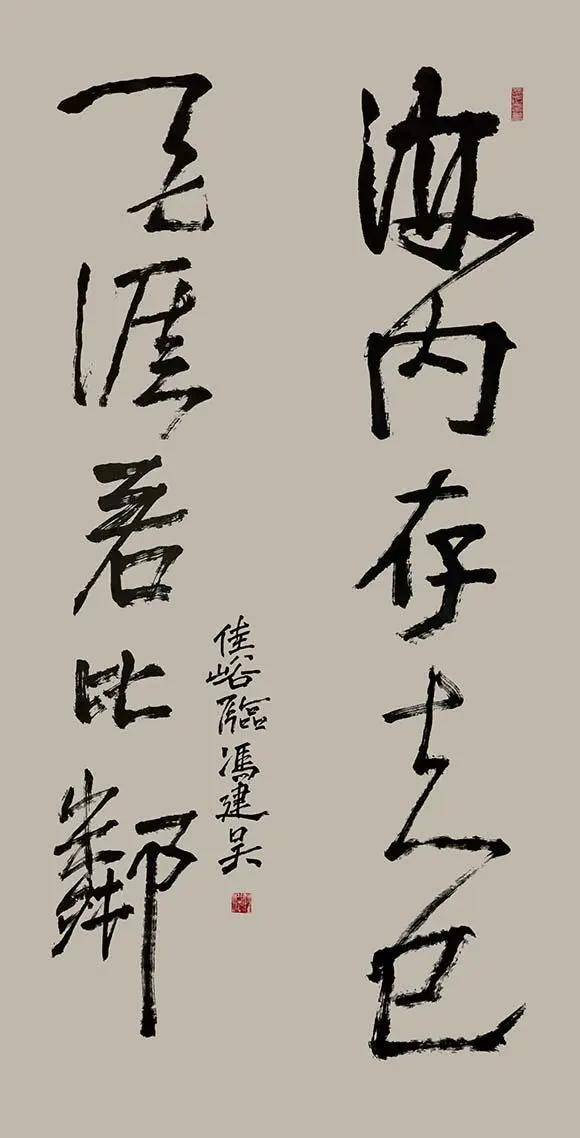 海内存知己
天涯若比鄰
佳峪臨馮建吴